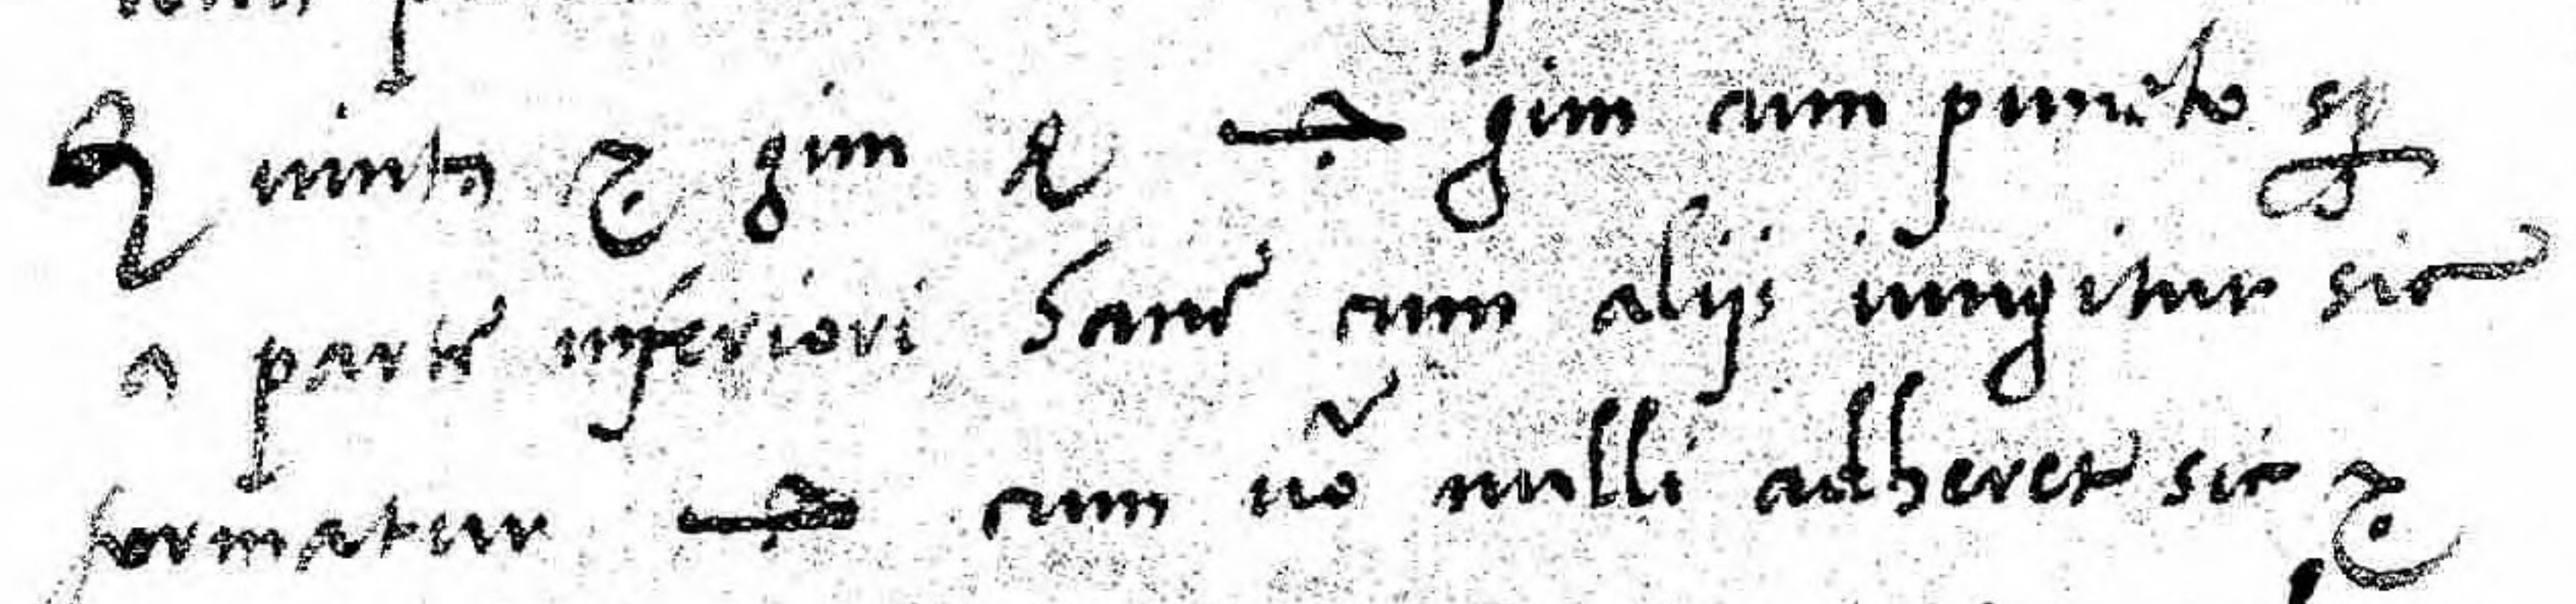 Quinta ج gim & ـجـ gim cum puncto sz
a parte inferiori hanc cum alijs iungitur sic
formatur ـجـ cum uõ nulli adheret sic ج